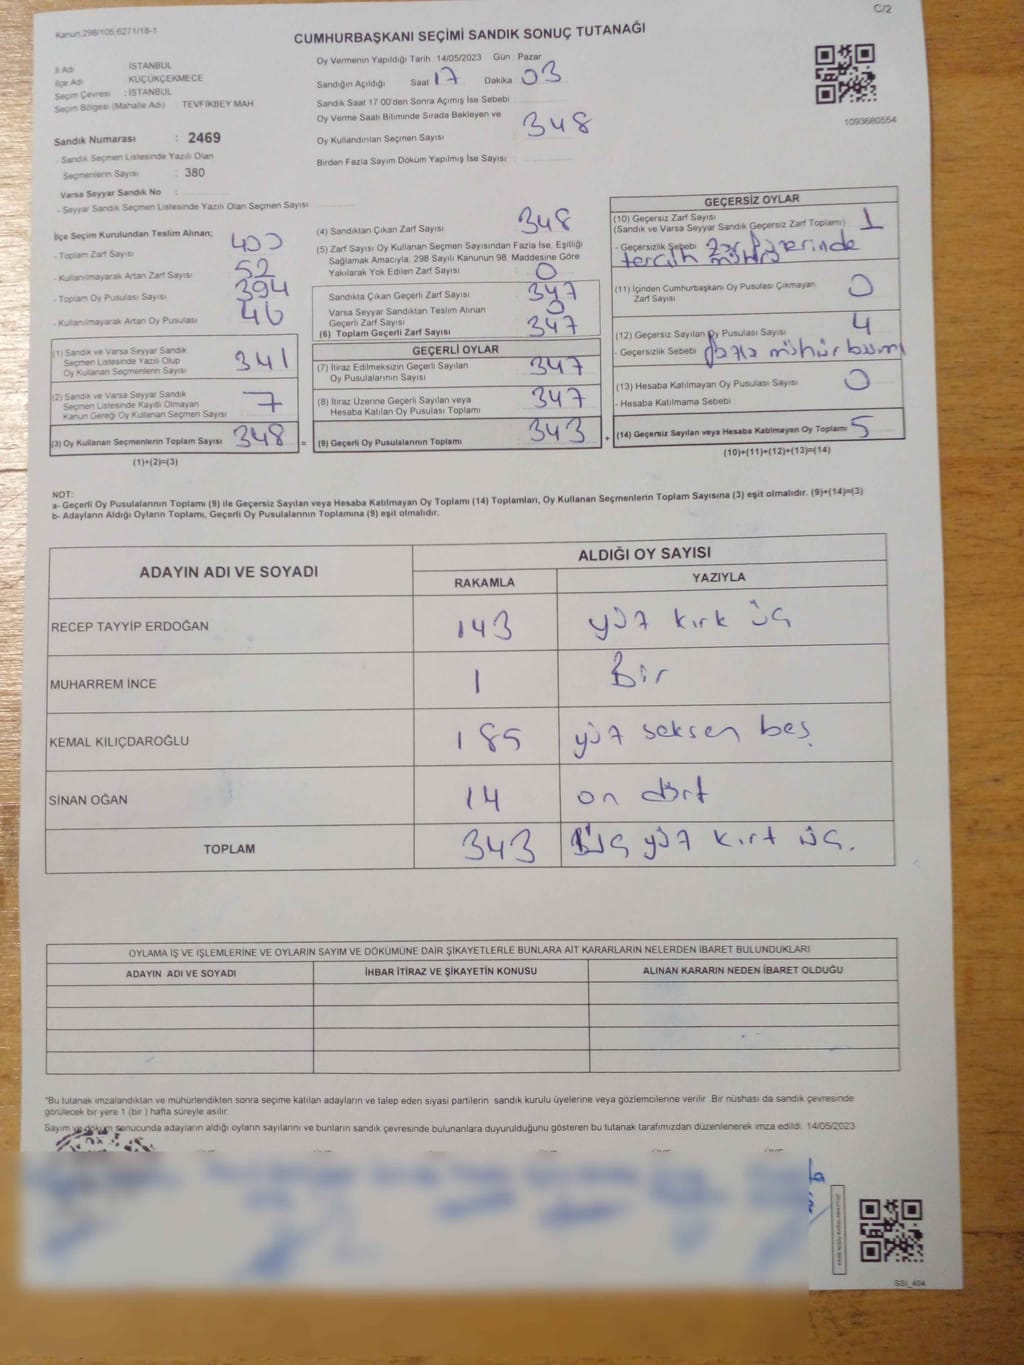 C/2
Kanun.298/105,6271/18-1
CUMHURBAŞKANI SEÇİMİ SANDIK SONUÇ TUTANAĞI
İl Adı İSTANBUL
İlçe Adı KÜÇÜKÇEKMECE
Seçim Çevresi : İSTANBUL
Seçim Bölgesi (Mahalle Adı) TEVFİKBEY MAH
Sandık Numarası : 2469
- Sandık Seçmen Listesinde Yazılı Olan
Seçmenlerin Sayısı : 380
Varsa Seyyar Sandık No :
- Seyyar Sandık Seçmen Listesinde Yazılı Olan Seçmen Sayısı
Oy Vermenin Yapıldığı Tarih :14/05/2023 Gün : Pazar
Sandığın Açıldığı Saat 17 Dakika 03
Sandık Saat 17 00'den Sonra Açımış İse Sebebi
Oy Verme Saati Bitiminde Sırada Bekleyen ve
Oy Kullandırılan Seçmen Sayısı 348
Birden Fazla Sayım Döküm Yapılmış İse Sayısı
1093680554
İlçe Seçim Kurulundan Teslim Alınan;
- Toplam Zarf Sayısı 400
- Kullanılmayarak Artan Zarf Sayısı 52
- Toplam Oy Pusulası Sayısı 394
- Kullanılmayarak Artan Oy Pusulası 46
(1) Sandık ve Varsa Seyyar Sandık
Seçmen Listesinde Yazılı Olup
Oy Kullanan Seçmenlerin Sayısı 341
(2) Sandık ve Varsa Seyyar Sandık
Seçmen Listesinde Kayıtlı Olmayan
Kanun Gereği Oy Kullanan Seçmen Sayısı 7
(3) Oy Kullanan Seçmenlerin Toplam Sayısı 348 =
(1)+(2)=(3)
(4) Sandıktan Çıkan Zarf Sayısı 348
(5) Zarf Sayısı Oy Kullanan Seçmen Sayısından Fazla İse, Eşitliği
Sağlamak Amacıyla, 298 Sayılı Kanunun 98. Maddesine Göre
Yakılarak Yok Edilen Zarf Sayısı 0
Sandıkta Çıkan Geçerli Zarf Sayısı 347
Varsa Seyyar Sandıktan Teslim Alınan
Geçerli Zarf Sayısı 0
(6) Toplam Geçerli Zarf Sayısı 347
GEÇERLİ OYLAR
(7) İtiraz Edilmeksizin Geçerli Sayılan
Oy Pusulalarının Sayısı 347
(8) İtiraz Üzerine Geçerli Sayılan veya
Hesaba Katılan Oy Pusulası Toplamı 347
(9) Geçerli Oy Pusulalarının Toplamı 343 +
GEÇERSİZ OYLAR
(10) Geçersiz Zarf Sayısı
(Sandık ve Varsa Seyyar Sandık Geçersiz Zarf Toplamı) 1
- Geçersizlik Sebebi Zarf üzerinde
tercih mührü
(11) İçinden Cumhurbaşkanı Oy Pusulası Çıkmayan
Zarf Sayısı 0
(12) Geçersiz Sayılan Oy Pusulası Sayısı 4
- Geçersizlik Sebebi fazla mühür basımı
(13) Hesaba Katılmayan Oy Pusulası Sayısı 0
- Hesaba Katılmama Sebebi
(14) Geçersiz Sayılan veya Hesaba Katılmayan Oy Toplamı 5
(10)+(11)+(12)+(13)=(14)
NOT:
a- Geçerli Oy Pusulalarının Toplamı (9) ile Geçersiz Sayılan veya Hesaba Katılmayan Oy Toplamı (14) Toplamları, Oy Kullanan Seçmenlerin Toplam Sayısına (3) eşit olmalıdır. (9)+(14)=(3)
b- Adayların Aldığı Oyların Toplamı, Geçerli Oy Pusulalarının Toplamına (9) eşit olmalıdır.
ADAYIN ADI VE SOYADI
ALDIĞI OY SAYISI
RAKAMLA YAZIYLA
RECEP TAYYİP ERDOĞAN 143 yüz kırk üç
MUHARREM İNCE 1 Bir
KEMAL KILIÇDAROĞLU 185 yüz seksen beş
SİNAN OĞAN 14 on dört
TOPLAM 343 Üç yüz kırk üç.
OYLAMA İŞ VE İŞLEMLERİNE VE OYLARIN SAYIM VE DÖKÜMÜNE DAİR ŞİKAYETLERLE BUNLARA AİT KARARLARIN NELERDEN İBARET BULUNDUKLARI
ADAYIN ADI VE SOYADI İHBAR İTİRAZ VE ŞİKAYETİN KONUSU ALINAN KARARIN NEDEN İBARET OLDUĞU
*Bu tutanak imzalandıktan ve mühürlendikten sonra seçime katılan adayların ve talep eden siyasi partilerin sandık kurulu üyelerine veya gözlemcilerine verilir. Bir nüshası da sandık çevresinde
görülecek bir yere 1 (bir ) hafta süreyle asılır.
Sayım ve döküm sonucunda adayların aldığı oyların sayılarını ve bunların sandık çevresinde bulunanlara duyurulduğunu gösteren bu tutanak tarafımızdan düzenlenerek imza edildi. 14/05/2023
SSI_404